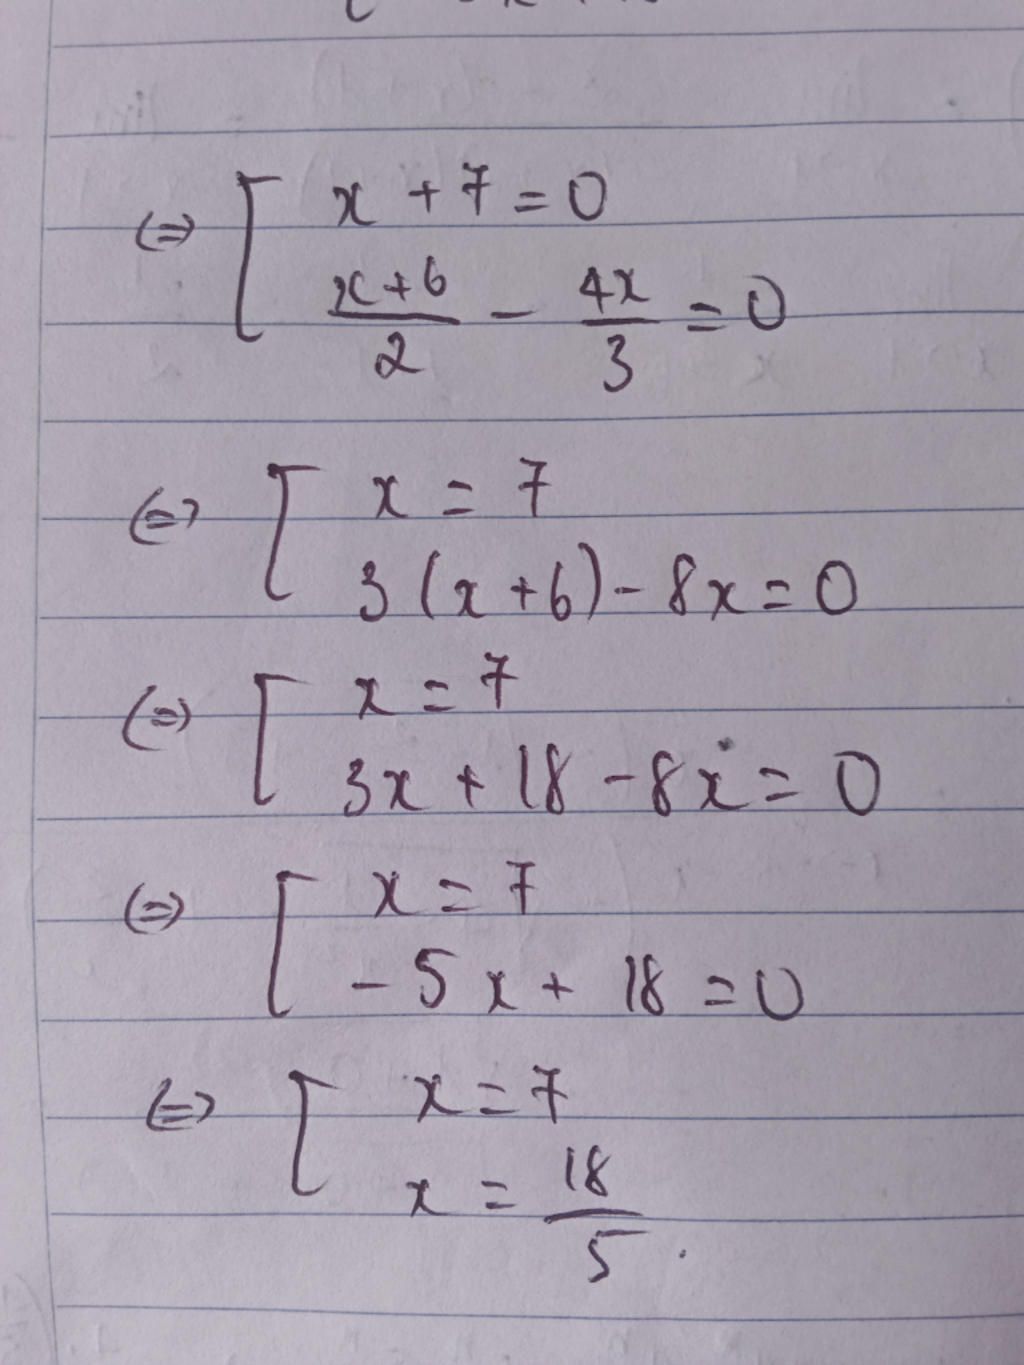 ⇔ [ x + 7 = 0
(x+6)/2 - 4x/3 = 0
⇔ [ x = 7
3(x+6) - 8x = 0
⇔ [ x = 7
3x + 18 - 8x = 0
⇔ [ x = 7
- 5x + 18 = 0
⇔ [ x = 7
x = 18/5 .